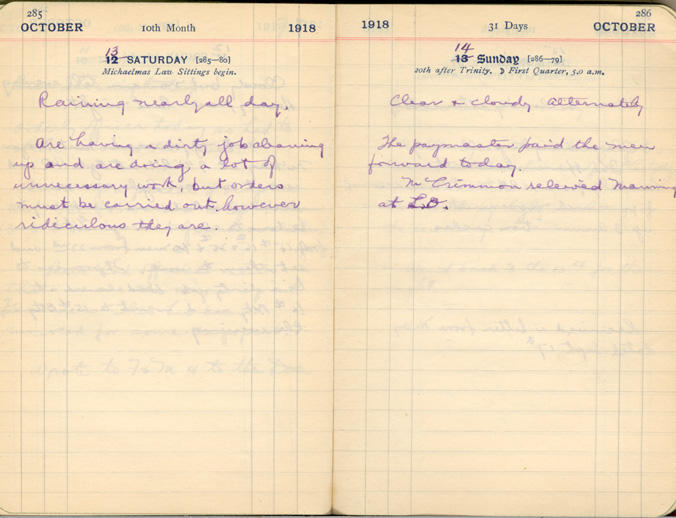 285
OCTOBER 10th Month 1918
13
12 SATURDAY [285–80]
Michaelmas Law Sittings begin.
Raining nearly all day.
Are having a dirty job cleaning
up and are doing a lot of
unnecessary work, but orders
must be carried out however
ridiculous they are.
286
1918 31 Days OCTOBER
14
13 Sunday [286–79]
20th after Trinity. ☽ First Quarter, 5.0 a.m.
Clear & cloudy alternately
The paymaster paid the men
forward today.
McCrimmon relieved Manning
at L.O.